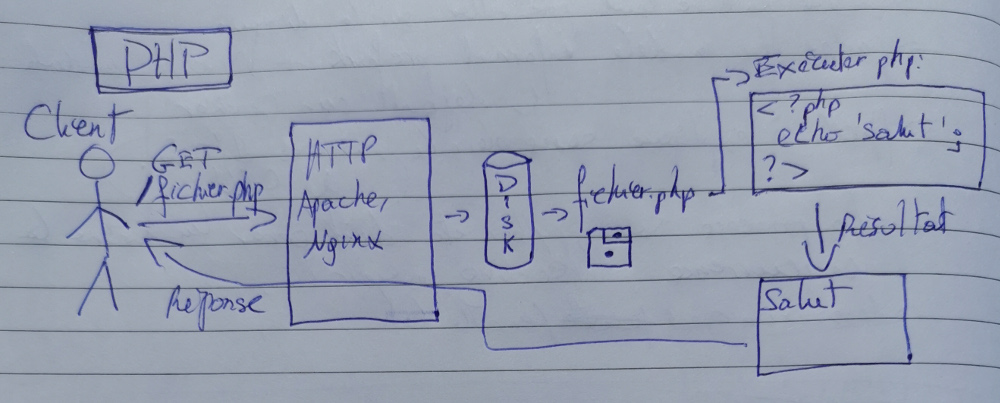 PHP
Client
GET
/fichier.php
HTTP
Apache,
Nginx
DISK
fichier.php
Exécuter php:
<?php
echo 'salut';
?>
Résultat
Salut
Réponse